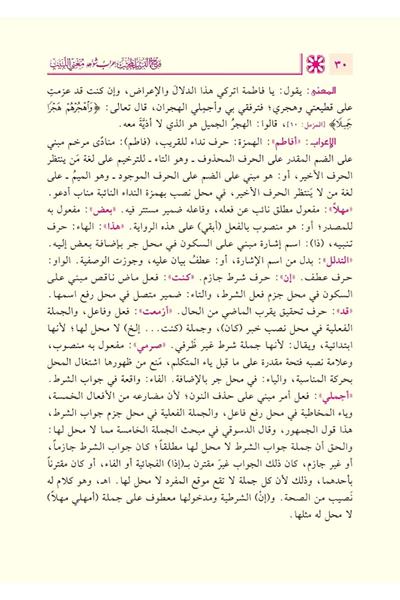 ٣٠ فتح القريب المجيب إعراب شواهد مغني اللبيب
المعنى: يقول: يا فاطمة اتركي هذا الدلال والإعراض، وإن كنت قد عزمتِ
على قطيعتي وهجري؛ فترفقي بي وأجملي الهجران، قال تعالى: ﴿وَاهْجُرْهُمْ هَجْرًا
جَمِيلًا﴾ [المزمل: ١٠]، قالوا: الهجرُ الجميل هو الذي لا أذيَّةَ معه.
الإعراب: «أفاطم»: الهمزة: حرف نداء للقريب، (فاطم): منادًى مرخم مبني
على الضم المقدر على الحرف المحذوف ـ وهو التاء ـ للترخيم على لغة مَن ينتظر
الحرف الأخير، أو: هو مبني على الضم على الحرف الموجود ـ وهو الميمُ ـ على
لغة من لا يَنتظر الحرف الأخير، في محل نصب بهمزة النداء النائبة مناب أدعو.
«مهلاً»: مفعول مطلق نائب عن فعله، وفاعله ضمير مستتر فيه. «بعض»: مفعول به
للمصدر؛ أو: هو منصوب بالفعل (أبقي) على هذه الرواية. «هذا»: الهاء: حرف
تنبيه، (ذا): اسم إشارة مبني على السكون في محل جر بإضافة بعض إليه.
«التدلل»: بدل من اسم الإشارة، أو: عطفُ بيان عليه، وجوزت الوصفية. الواو:
حرف عطف. «إن»: حرف شرط جازم. «كنت»: فعل ماض ناقص مبني على
السكون في محل جزم فعل الشرط، والتاء: ضمير متصل في محل رفع اسمها.
«قد»: حرف تحقيق يقرب الماضي من الحال. «أزمعت»: فعل وفاعل، والجملة
الفعلية في محل نصب خبر (كان)، وجملة (كنت... إلخ) لا محل لها؛ لأنها
ابتدائية، ويقال: لأنها جملة شرط غير ظرفي. «صرمي»: مفعول به منصوب،
وعلامة نصبه فتحة مقدرة على ما قبل ياء المتكلم، مَنع من ظهورها اشتغال المحل
بحركة المناسبة، والياء: في محل جر بالإضافة. الفاء: واقعة في جواب الشرط.
«أجملي»: فعل أمر مبني على حذف النون؛ لأن مضارعه من الأفعال الخمسة،
وياء المخاطبة في محل رفع فاعل، والجملة الفعلية في محل جزم جواب الشرط،
هذا قول الجمهور، وقال الدسوقي في مبحث الجملة الخامسة مما لا محل لها:
والحق أن جملة جواب الشرط لا محل لها مطلقاً؛ كان جواب الشرط جازماً،
أو غير جازم، كان ذلك الجواب غيرَ مقترن بـ(إذا) الفجائية أو الفاء، أو كان مقترناً
بأحدهما، وذلك لأن كل جملة لا تقع موقع المفرد لا محل لها. اهـ، وهو كلام له
نَصيب من الصحة. و(إنْ) الشرطية ومدخولها معطوف على جملة (أمهلي مهلاً)
لا محل له مثلها.